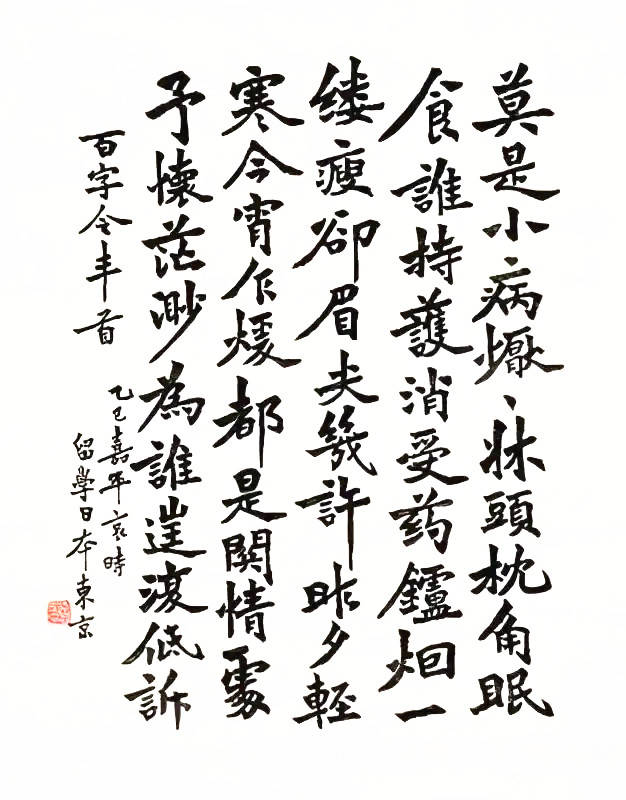 莫是小病懨、牀頭枕角眠
食誰持護消受药鑪烟一
缕瘦卻眉尖幾許昨夕輕
寒今宵乍煖都是關情處
予懷茫渺為誰低訴
百字令半首
乙巳嘉平哀時
留學日本東京